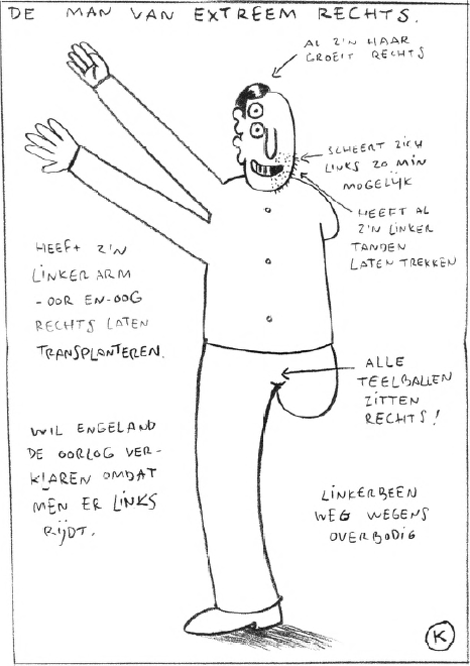 DE MAN VAN EXTREEM RECHTS.
AL Z'N HAAR
GROEIT RECHTS
SCHEERT ZICH
LINKS ZO MIN
MOGELIJK
HEEFT AL
Z'N LINKER
TANDEN
LATEN TREKKEN
HEEFT Z'N
LINKER ARM
-OOR EN-OOG
RECHTS LATEN
TRANSPLANTEREN.
ALLE
TEELBALLEN
ZITTEN
RECHTS!
WIL ENGELAND
DE OORLOG VER-
KLAREN OMDAT
MEN ER LINKS
RIJDT.
LINKERBEEN
WEG WEGENS
OVERBODIG
K